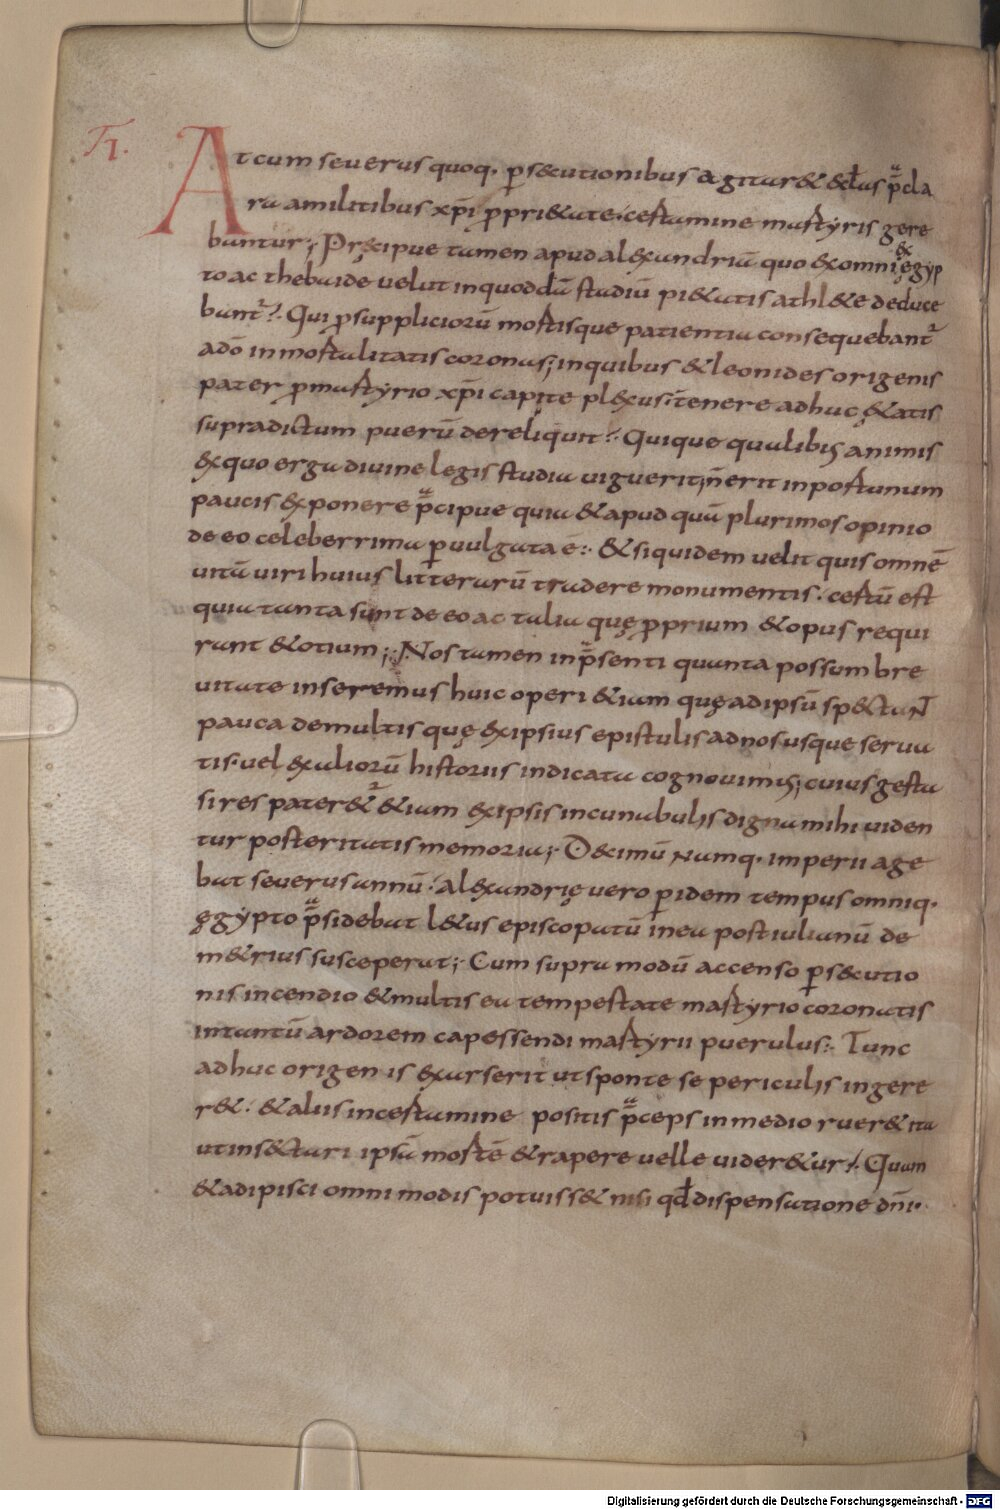 TI.
At cum seuerus quoq. p̱secutionibus agitaret & ecłas p̄cla
ra a militibus xp̄i p̱ pri&ate· certamine martyris gere
bantur; Pręcipue tamen apud alexandriā quo ex omni ęgyp
ex
to ac thebaide uelut in quoddā stadiū pi&atis athl&e deduce
bant᷑?. Qui p̱ suppliciorū mortisque patientia consequebant᷑
a dō inmortalitatis coronas; in quibus & leonides origenis
pater p̱ martyrio xp̄i capite plexus· tenere adhuc ę&atis
supradictum puerū dereliquit?. Quique qualibꝫ animis
ex quo erga diuine legis studia uiguerit; ñ erit inportunum
paucis exponere p̄cipue quia & apud quā plurimos opinio
de eo celeberrima p̱uulgata ē:· & siquidem uelit quis omnē
uitā uiri huius litterarū tradere monumentis· certū est
quia tanta sunt de eo ac talia quę p̱prium & opus requi
rant & otium;· Nos tamen in p̄senti quanta possum bre
uitate inseremus huic operi &iam quę ad ipsū sp&ctaN̄
pauca de multis quę ex ipsius epistulis ad nos usque serua
tis· uel ex aliorū historiis indicata cognouimꝰ; cuius gesta
si res pater&᷑ &iam ex ipsis incunabulis digna mihi uiden
tur posteritatis memoria;· Decimū namq. imperii age
bat seuerus annū· alexandrię uero p̱ idem tempus omniq.
ęgypto p̄sidebat l&us episcopatū in ea post iulianū de
m&rius susceperat;· Cum supra modū accenso p̱s&cutio
nis incendio & multis ea tempestate martyrio coronatis
in tantū ardorem capessendi martyrii puerulus:· Tunc
adhuc origenis exarserit ut sponte se periculis ingere
r&· & aliis in certamine positis p̄ceps in medio ruer& ita
ut insectari ipsā mortē & rapere uelle uider&ur?. Quam
& adipisci omnimodis potuiss& nisi qđ dispensatione dn̄i·
Digitalisierung gefördert durch die Deutsche Forschungsgemeinschaft - DFG